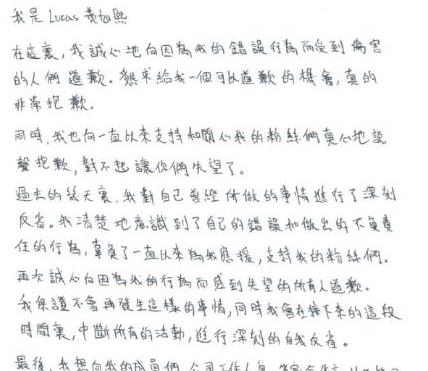 我是 Lucas 黃旭熙
在這裏,我誠心地向因為我的錯誤行為而受到傷害
的人們道歉。懇求給我一個可以道歉的機會,真的
非常抱歉.
同時,我也向一直以來支持和關心我的粉絲們真心地說
聲抱歉,對不起讓你們失望了。
過去的幾天裏,我對自己曾經所做的事情進行了深刻
反省。我清楚地意識到了自己的錯誤和做出的不負責
任的行為,辜負了一直以來為我應援,支持我的粉絲們.
再次誠心向因為我的行為而感到失望的所有人道歉.
我保證不會再發生這樣的事情,同時我會在接下來的這段
時間裏,中斷所有的活動,進行深刻的自我反省。
最後,我想向我的成員們,公司工作人員